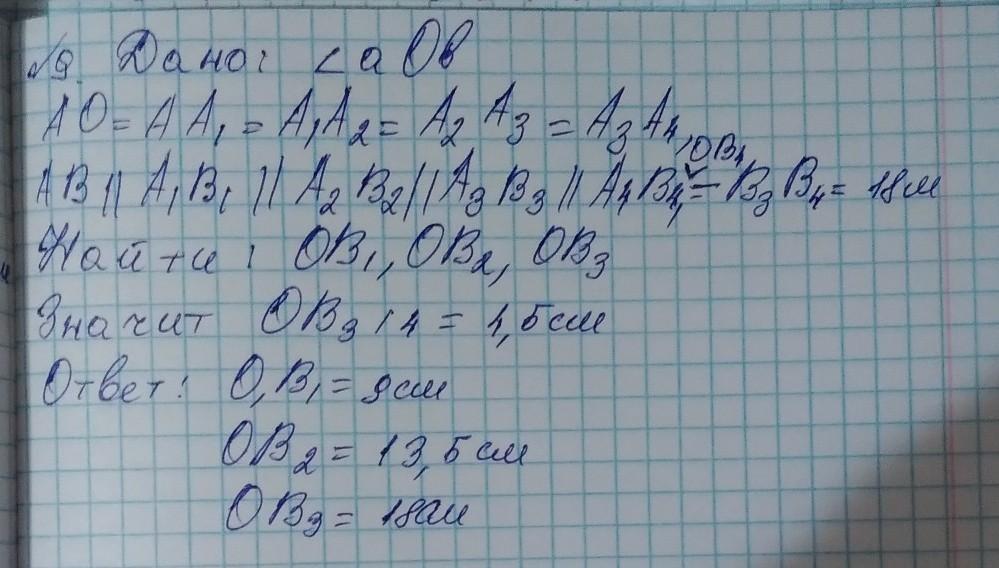 №9. Дано: <aOв
AO = AA₁ = A₁A₂ = A₂A₃ = A₃A₄,
AB || A₁B₁ || A₂B₂ || A₃B₃ || A₄B₄, OB₄ – B₃B₄ = 18м
Найти: OB₁, OB₂, OB₃
Значит OB₃ : 4 = 4,5см
Ответ: O,B₁ = 9см
OB₂ = 13,5см
OB₃ = 18см